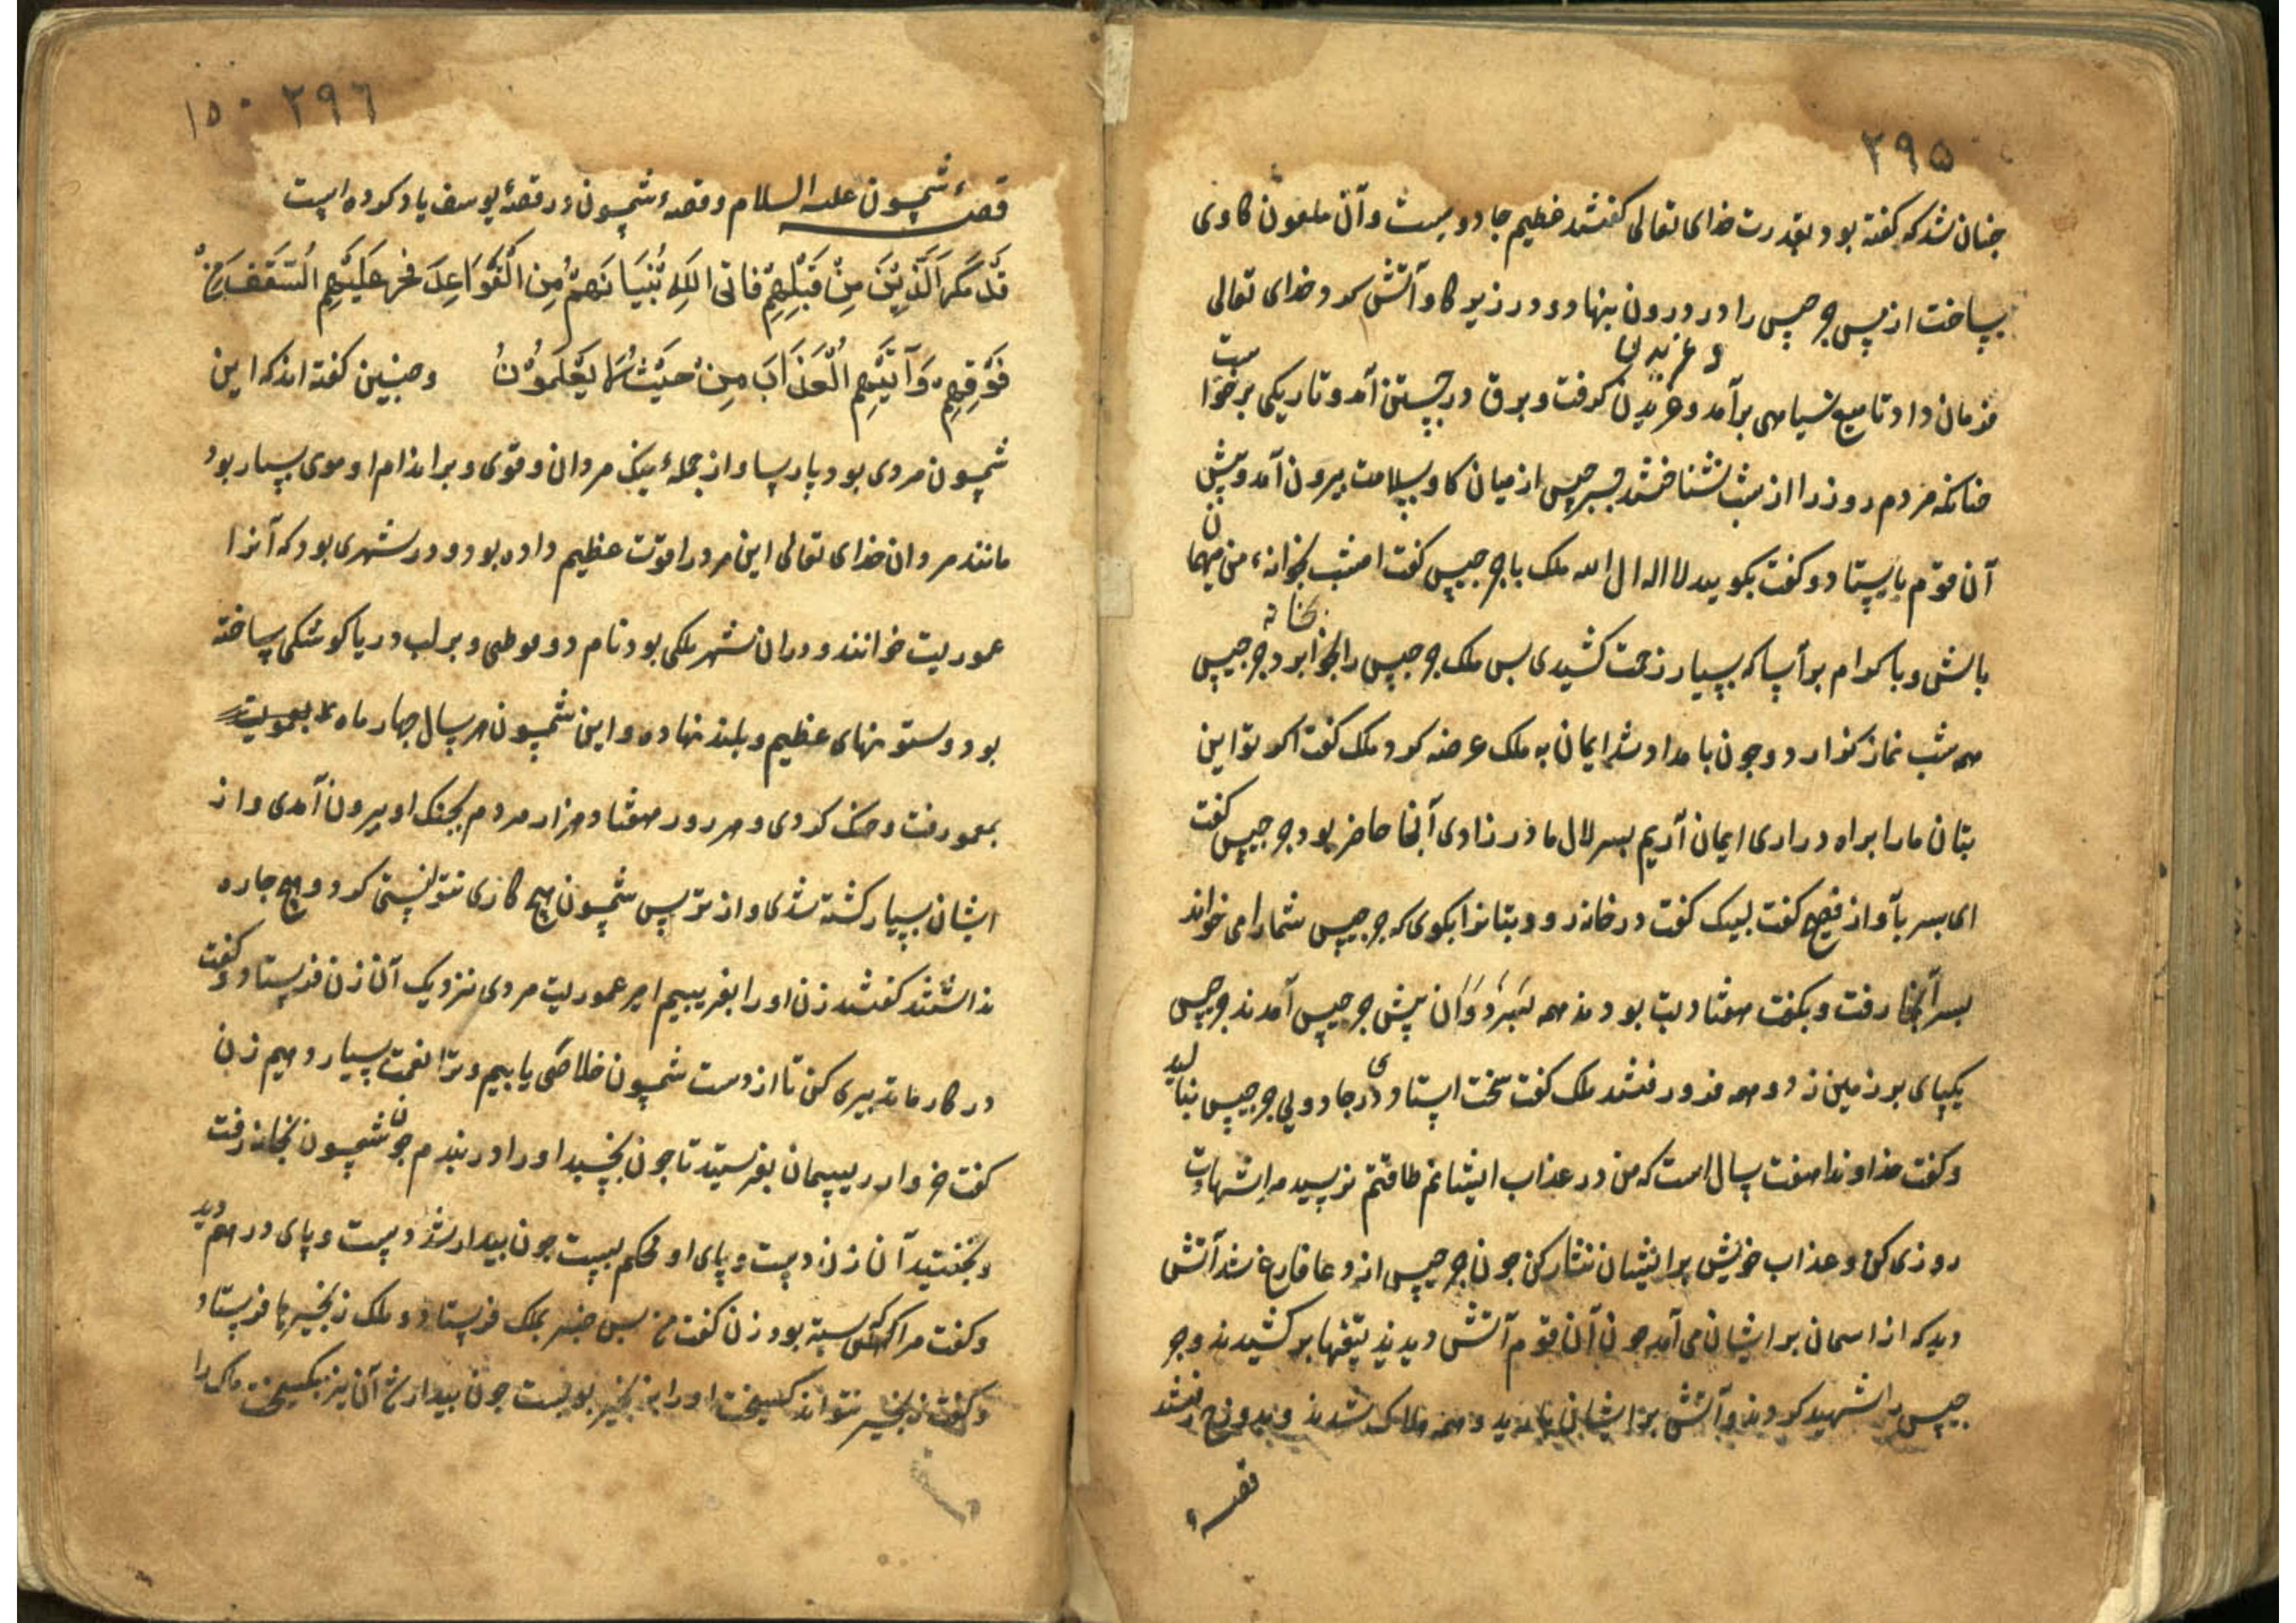 ۲۹۵
چنان شد که گفته بود بقدرت خدای تعالی گفتند عظیم جادویست و آن ملعون گاوی
بساخت از مس جرجیس را در درون بنهاد و در زیر گاو آتش کرد خدای تعالی
و غریدن
فرمان داد تا میغ سیاهی برآمد و غریدن گرفت و برق در جستن آمد و تاریکی برخواست
چنانکه مردم روز را از شب نشناختند جرجیس از میان گاو بسلامت بیرون آمد و پیش
آن قوم بایستاد و گفت بگویید لا اله الا الله ملک با جرجیس گفت امشب بخانهٔ من میهمان
بخانه
باش و با کرام برآسا که بسیار زحمت کشیدی پس ملک جرجیس را بخانه برد جرجیس
همه شب نماز گزارد و چون بامداد شد ایمان به ملک عرضه کرد ملک گفت اگر تو این
بتان ما را براه در اری ایمان آریم پسر لال مادرزادی آنجا حاضر بود جرجیس گفت
ای پسر بآواز فصیح گفت لبیک گفت در خانه رو و بتانرا بگوی که جرجیس شما را می خواند
پسر آنجا رفت و بگفت هفتاد بت بودند همه بسر دوان پیش جرجیس آمدند جرجیس
یکپای بر زمین زد و همه فرو رفتند ملک گفت سخت استادی در جادویی جرجیس بنالید
و گفت خداوندا هفت سال است که من در عذاب ایشانم طاقتم نرسید مرا شهادت
روزی کن و عذاب خویش بر ایشان نثار کن چون جرجیس از دعا فارغ شد آتش
دید که از اسمان بر ایشان می آمد چون آن قوم آتش دیدند تیغها برکشیدند و جر
جیس را شهید کردند و آتش بر ایشان بارید و همه هلاک شدند و بدوزخ رفتند
قصهٔ
۲۹٦ ۱۵۰
قصهٔ شمسون علیه السلام و قصهٔ شمسون در قصهٔ یوسف یاد کرده است
قَدْ مَكَرَ الَّذِينَ مِنْ قَبْلِهِمْ فَاتَى اللهُ بُنْيَانَهُمْ مِنَ الْقَوَاعِدَ فخر عَلَيْهِمُ السَّقَفُ مِنْ
فَوْقِهِمْ وَآتَيهُمُ الْعَذَابَ مِنْ حَيْثُ لَا يَعْلَمُونُ و چنین گفته اند که این
شمسون مردی بود پارسا و از جملهٔ نیک مردان و قوی و بر اندام او موی بسیار بود
مانند مردان خدای تعالی این مرد را قوّت عظیم داده بود و در شهری بود که آنرا
عموریت خوانند و در ان شهر ملکی بود نام و بر لب دریا کوشکی ساخته
بود و ستونهای عظیم و بلند نهاده و این شمسون هر سال چهار ماه بعموریت
بعمو رفت و جنگ کردی و هر روز هفتاد هزار مردم بجنگ او بیرون آمدی و از
ایشان بسیار کشته شدی و از ترس شمسون هیچ کاری نتوانستی کرد و هیچ چاره
نداشتند گفتند زن او را بفریبیم امیر عموریت مردی نزدیک آن زن فرستاد و گفت
در کار ما تدبیری کن تا از دست شمسون خلاصی یابیم و ترا نعمت بسیار دهیم زن
گفت خروار ریسمان بفرستید تا چون بخسبد او را در بندم چون شمسون بخانه رفت
و بخفتید آن زن دست و پای او محکم ببست چون بیدار شد دست و پای در هم دید
و گفت مرا که بسته بود زن گفت من پس خبر بملک فرستاد و ملک زنجیرها فرستاد
و گفت زنجیر نتواند گسیخت او را به زنجیر بربست چون بیدار شد آن نیز بگسیخت ملک را